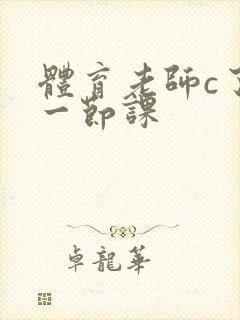 體育老師c了
一節課
卓龍華